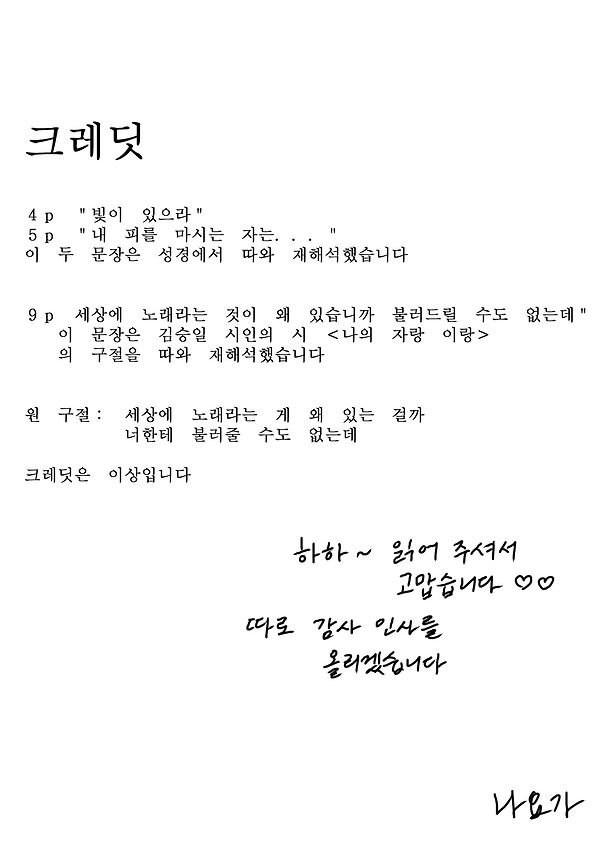 크레딧
4p "빛이 있으라"
5p "내 피를 마시는 자는..."
이 두 문장은 성경에서 따와 재해석했습니다
9p 세상에 노래라는 것이 왜 있습니까 불러드릴 수도 없는데"
이 문장은 김승일 시인의 시 <나의 자랑 이랑>
의 구절을 따와 재해석했습니다
원 구절: 세상에 노래라는 게 왜 있는 걸까
너한테 불러줄 수도 없는데
크레딧은 이상입니다
하하~ 읽어 주셔서
고맙습니다 ♡♡
따로 감사 인사를
올리겠습니다
나요가